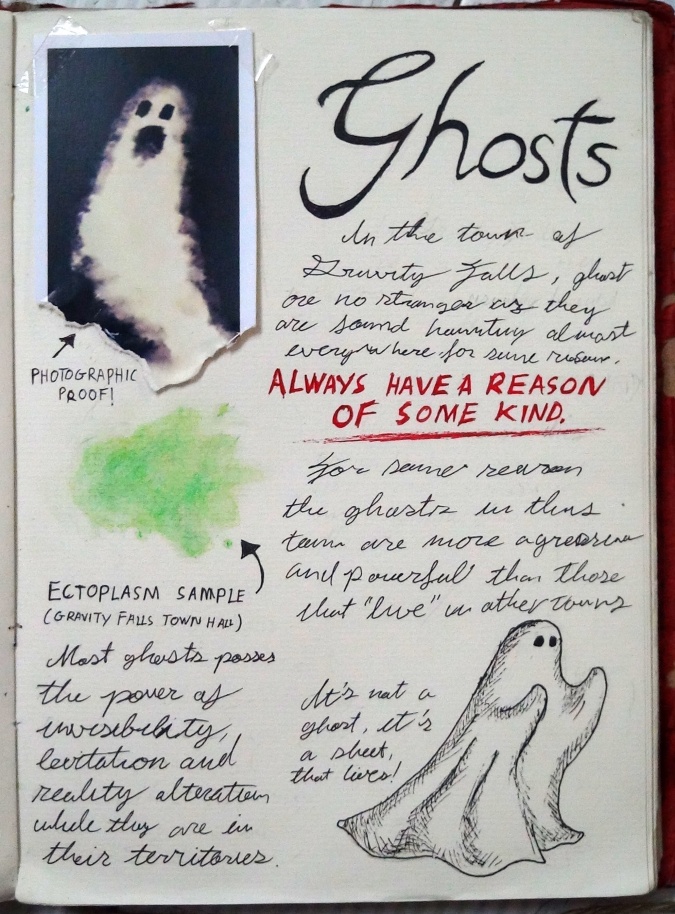 Ghosts
In the town of
Gravity Falls, ghost
are no stranger as they
are sound haunting almost
everywhere for some reason.
ALWAYS HAVE A REASON
OF SOME KIND.
PHOTOGRAPHIC
PROOF!
For some reason
the ghosts in this
town are more agressive
and powerful than those
that "live" in other towns
ECTOPLASM SAMPLE
(GRAVITY FALLS TOWN HALL)
Most ghosts posses
the power of
invisibility,
levitation and
reality alteration
while they are in
their territories.
It's not a
ghost, it's
a sheet,
that lives!